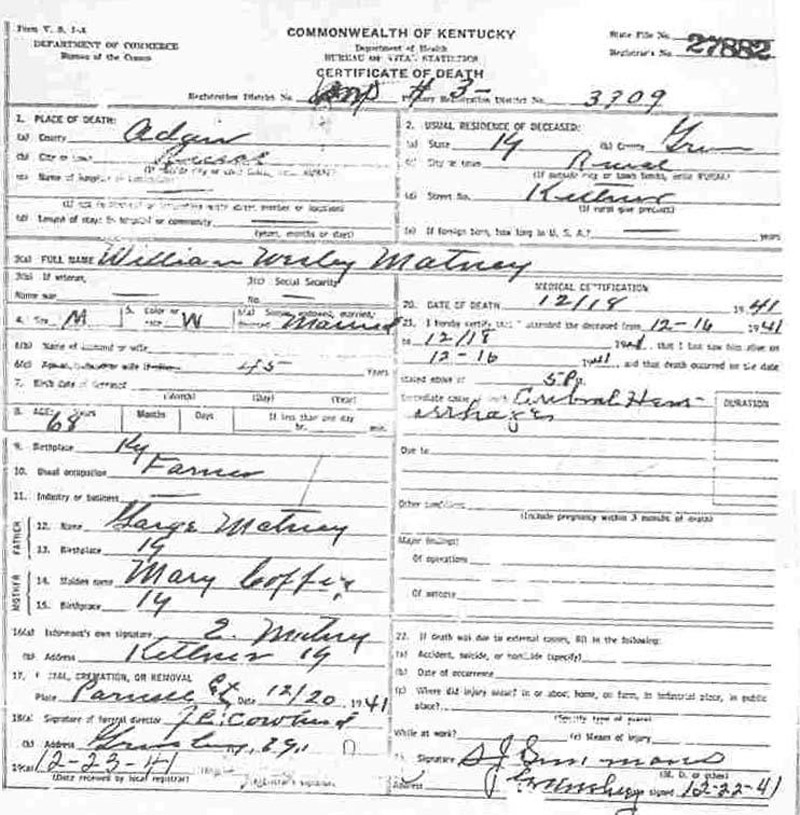 Form V. S. 1-A
DEPARTMENT OF COMMERCE
Bureau of the Census
COMMONWEALTH OF KENTUCKY
Department of Health
BUREAU OF VITAL STATISTICS
CERTIFICATE OF DEATH
State File No.
Registrar's No. 27882
Registration District No. # 3- Primary Registration District No. 3309
1. PLACE OF DEATH:
(a) County Adair
(b) City or town
(c) Name of hospital or institution
(If not in hospital or institution write street number or location)
(d) Length of stay: In hospital or community
(years, months or days)
2. USUAL RESIDENCE OF DECEASED:
(a) State Ky (b) County
(c) City or town Rural
(If outside city or town limits, write RURAL)
(d) Street No.
(If rural give precinct)
(e) If foreign born, how long in U. S. A.? years
3(a) FULL NAME William Wesley Matney
3(b) If veteran,
Name war
3(c) Social Security
No.
4. Sex M
5. Color or
race W
6(a) Single, widowed, married,
divorced Married
6(b) Name of husband or wife
6(c) Age of husband or wife if alive 45 Years
7. Birth date of deceased
(Month) (Day) (Year)
8. AGE: Years Months Days If less than one day
68 hr. min.
9. Birthplace Ky
10. Usual occupation Farmer
11. Industry or business
FATHER
12. Name George Matney
13. Birthplace Ky
MOTHER
14. Maiden name Mary
15. Birthplace Ky
16(a) Informant's own signature E. Matney
(b) Address Ky
17. BURIAL, CREMATION, OR REMOVAL
Place Date 12/20 1941
18(a) Signature of funeral director
(b) Address Ky.
19(a) 12-23-41
(Date received by local registrar) (Registrar's signature)
MEDICAL CERTIFICATION
20. DATE OF DEATH 12/18 1941
21. I hereby certify that I attended the deceased from 12-16 1941
to 12/18 1941, that I last saw him alive on
12-16 1941 and that death occurred on the date
stated above at 5 P
Immediate cause of death Cerebral Hem-
orrhage
DURATION
Due to
Other conditions
(Include pregnancy within 3 months of death)
Major findings:
Of operations
Of autopsy
22. If death was due to external causes, fill in the following:
(a) Accident, suicide, or homicide (specify)
(b) Date of occurrence
(c) Where did injury occur? In or about home, on farm, in industrial place, in public
place?
(Specify type of place)
While at work? (e) Means of injury
Signature S J Simmons
(M. D. or other)
Address Greensburg signed 12-22-41